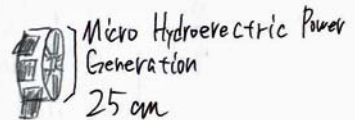 Micro Hydroerectric Power
Generation
25 cm